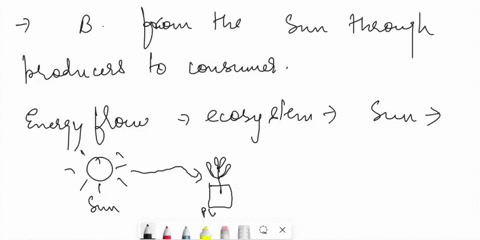 → B. from the Sun through
producers to consumer.
Energy flow → ecosystem → Sun →
Sun
Pl